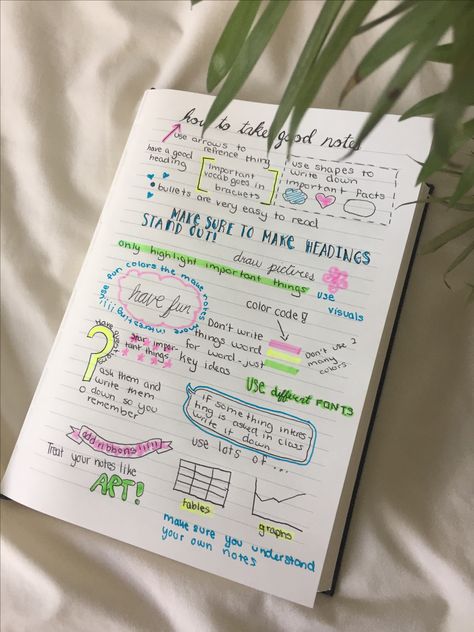 how to take good notes
use arrows to
refrence thing
have a good
heading
important
vocab goes in
brackets
use shapes to
write down
important facts
bullets are very easy to read
MAKE SURE TO MAKE HEADINGS
STAND OUT!
draw pictures
only highlight important things
use
visuals
use fun colors the make notes
more interesting!!!!
have fun
color code!!
Don't write
things word
for word-just
key ideas
Don't use 2
many
colors.
Have
Star impor-
tant things
USE different FONTS
ask them and
write them
down so you
remember
if something intres-
ting is asked in class
write it down
add ribbons!!!!!
use lots of ...
Treat your notes like
ART!
tables
graphs
make sure you understand
your own notes